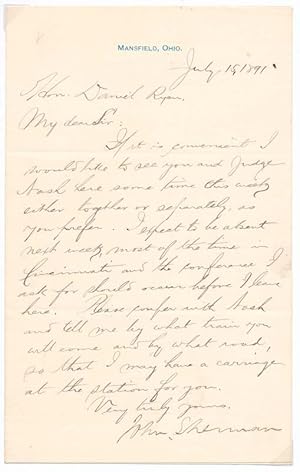 MANSFIELD, OHIO.
July 15, 1891.
Hon. Daniel Ryan,
My dear Sir:
If it is convenient I
would like to see you and Judge
Nash here some time this week
either together or separately, as
you prefer. I expect to be absent
next week, most of the time in
Cincinnati and the conference I
ask for should occur before I leave
here. Please confer with Nash
and tell me by what train you
will come and by what road,
so that I may have a carriage
at the station for you.
Very truly yours,
John Sherman